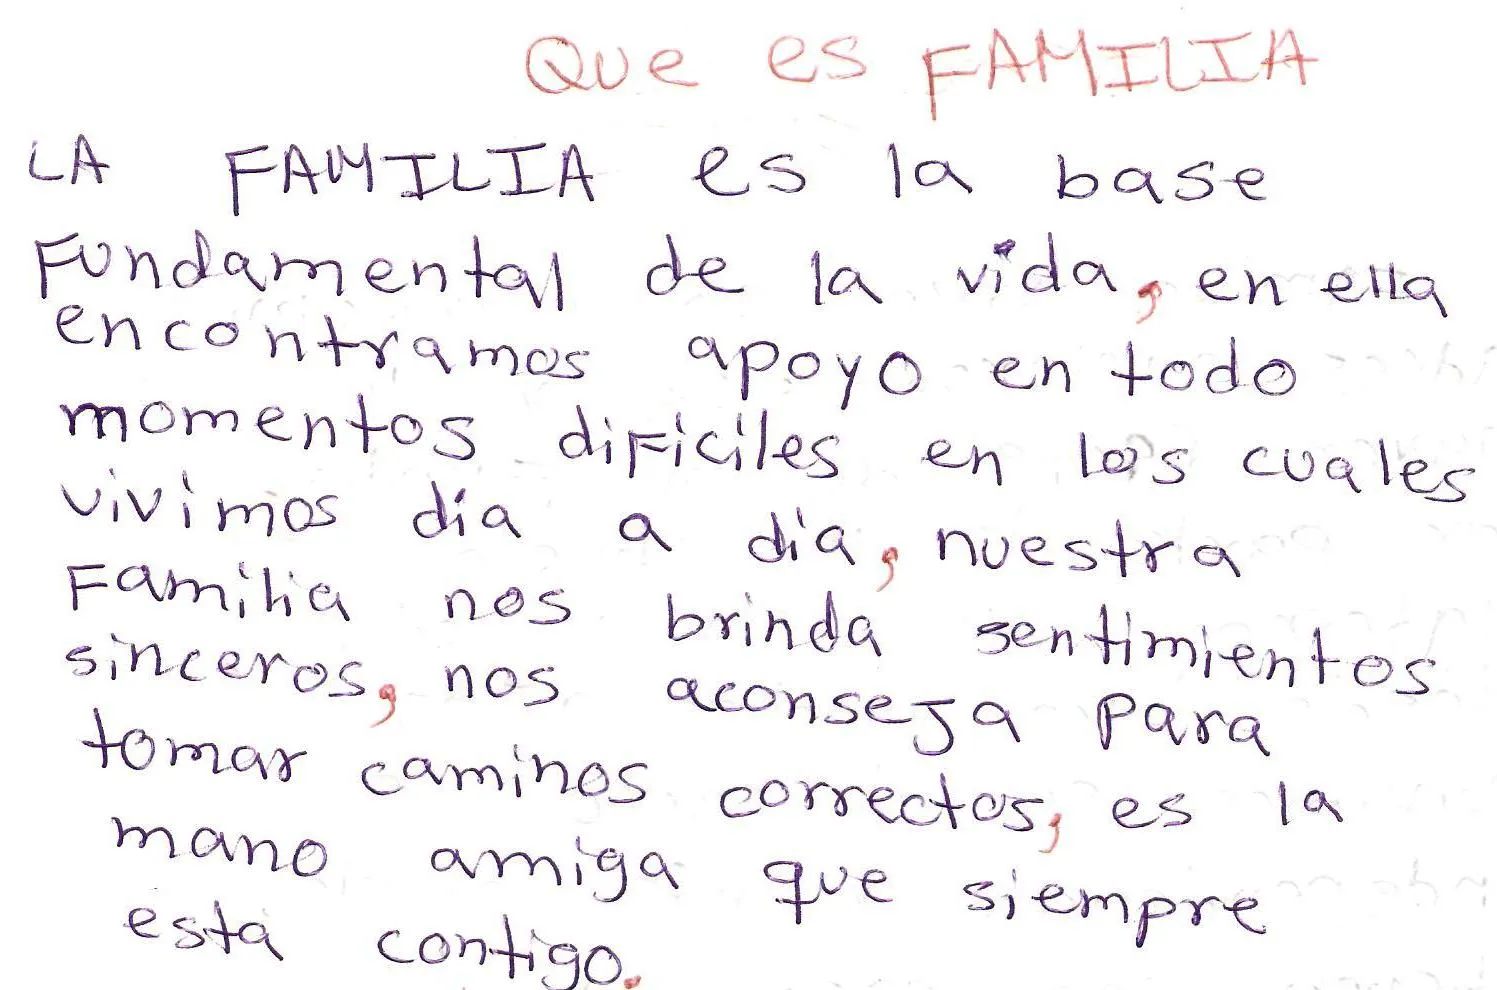 Que es FAMILIA
LA FAMILIA es la base
Fundamental de la vida, en ella
encontramos apoyo en todo
momentos dificiles en los cuales
vivimos día a día, nuestra
Familia nos brinda sentimientos
sinceros, nos aconseja para
tomar caminos correctos, es la
mano amiga que siempre
esta contigo.